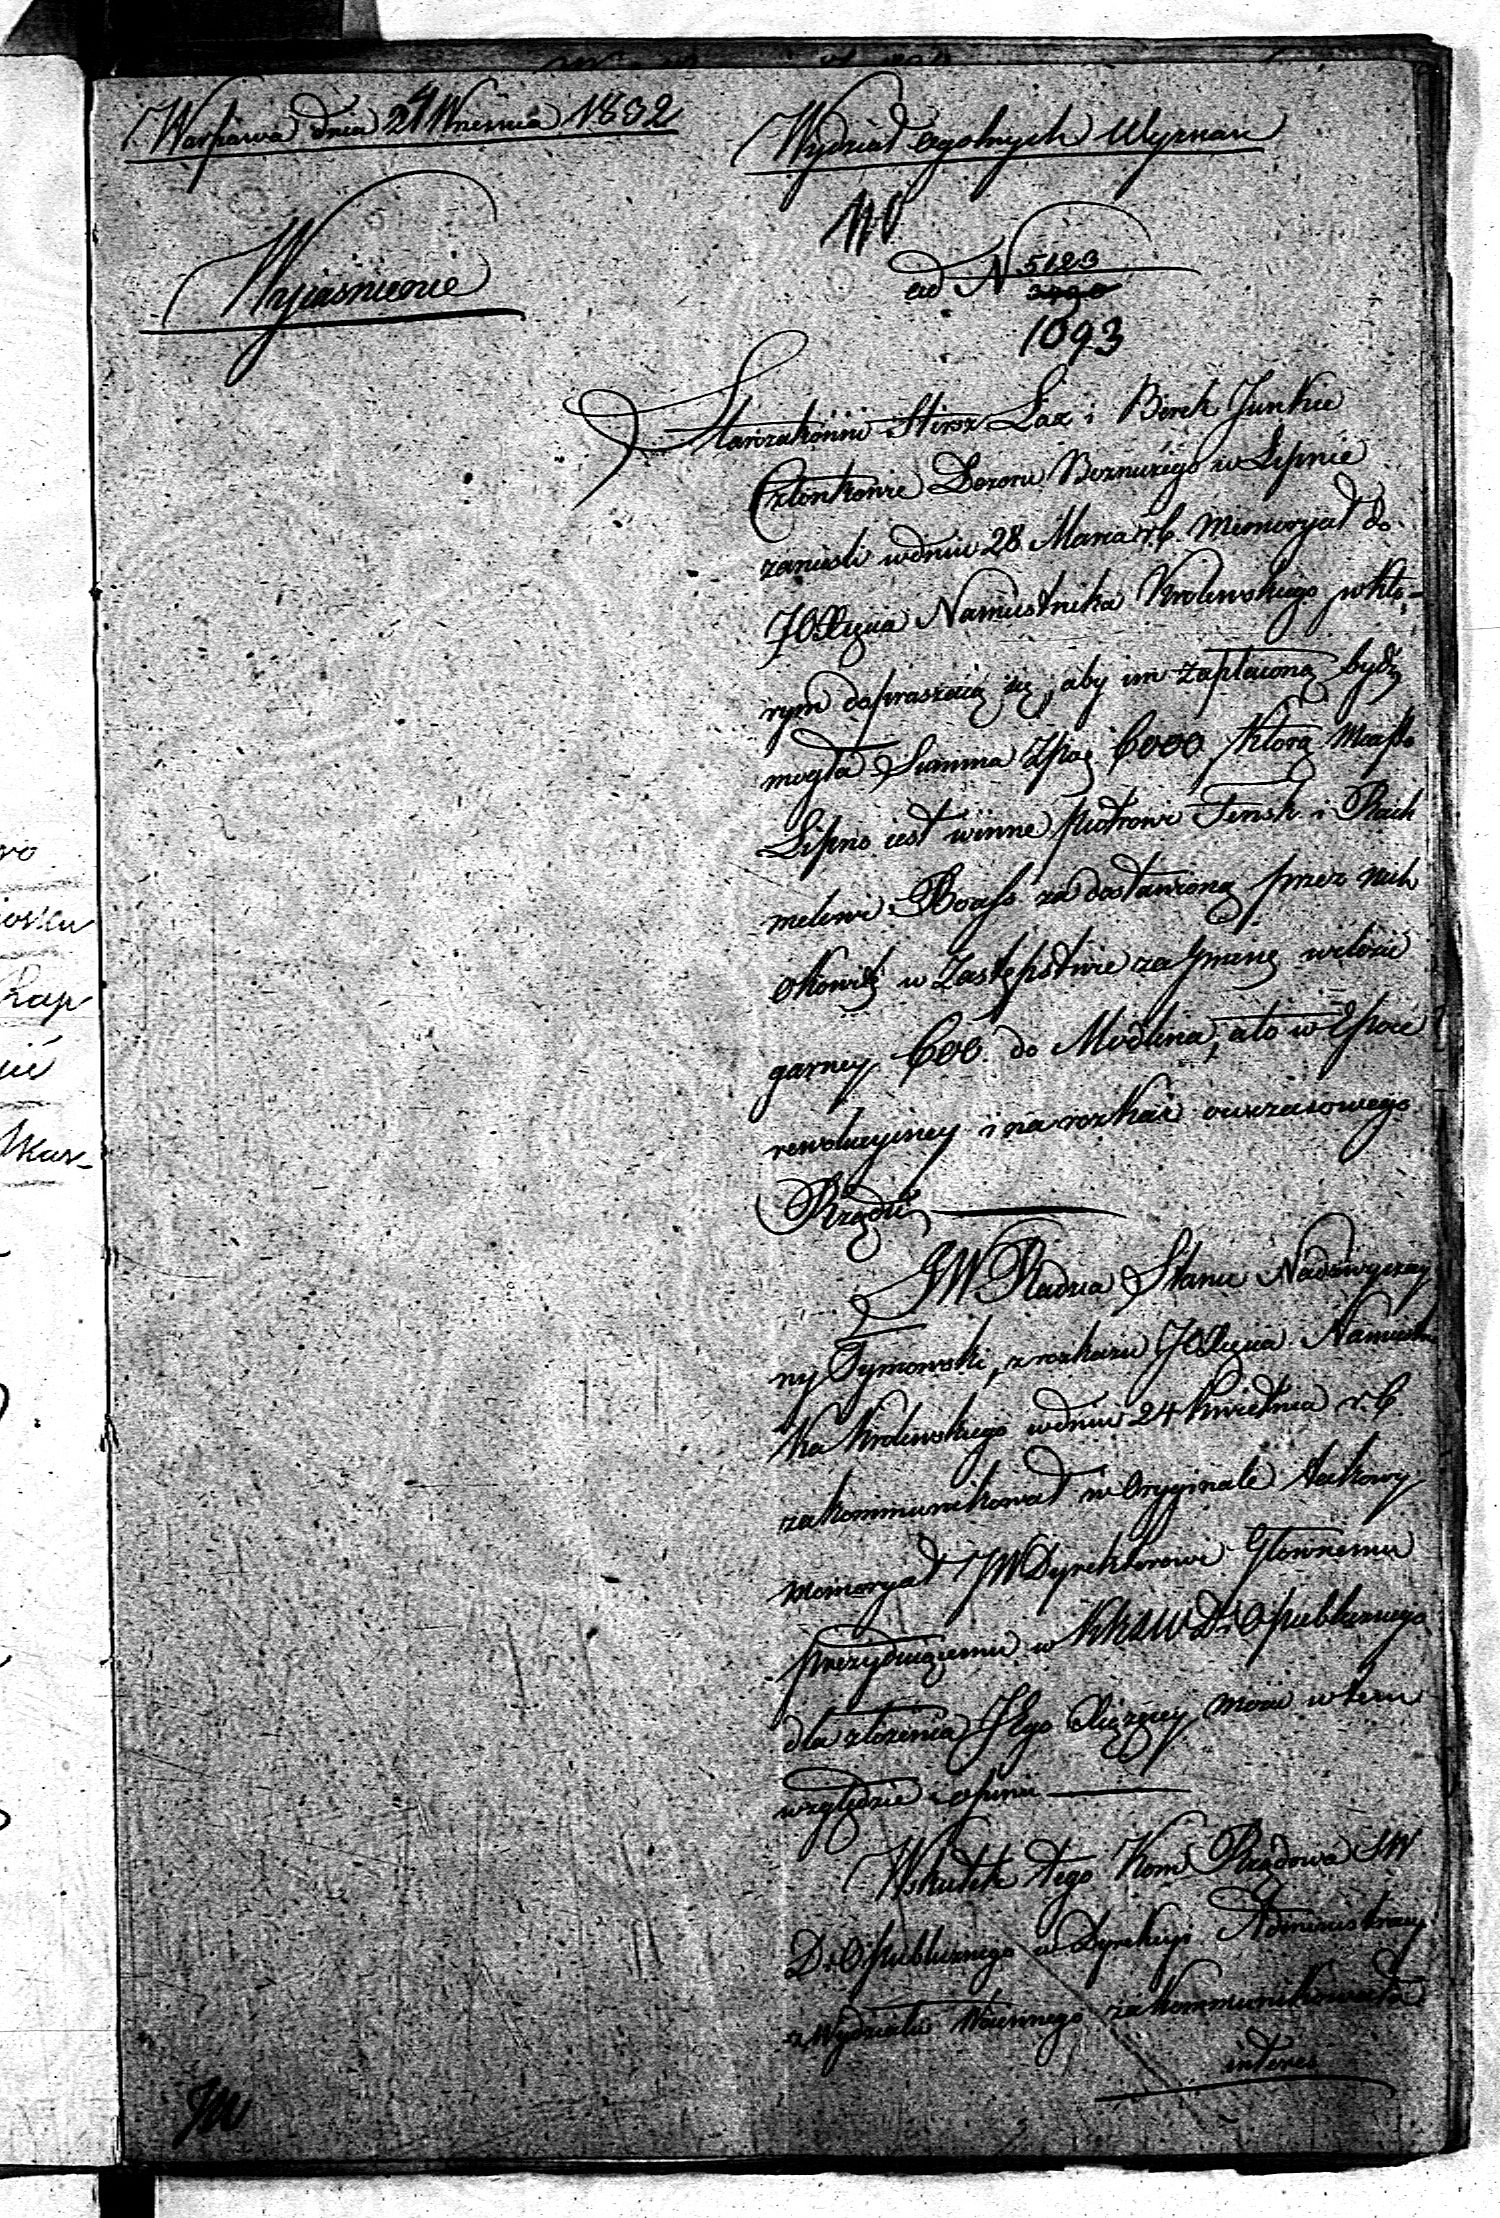 Warszawa dnia 24 Wrzesnia 1832
Wydział ogolnych Wyznan
Wyjaśnienie
ad N 5123
1093
Starozakonni Hersz Lax i Berek Junkie
Członkowie Dozoru Boznicżego w Lipnie
zanieśli wdniu 28 Marca r.b. memoryał do
JOXięcia Namiestnika Krolewskiego, wkto-
rym dopraszaią się, aby im zapłaconą bydź
mogła Summa Zpol 6000 ktorą miasto
Lipno iest winne Piotrowi Fensk i Rach
melowi Boass za dostawioną przez nich
okowitę w Zastępstwie za gminę wilości
garncy 600. do Modlina, a to w Epoce
rewolucyiney i na rozkaz owczasowego
Rządu
JW Radca Stanu Nadzwyczay
ny Tymowski, z rozkazu JOXięcia Namiestni
ka Krolewskiego wdniu 24 Kwietnia r.b.
zakommunikował w Oryginale takowy
memoryał JW Dyrektorowi Głownemu
prezyduiącemu w KRSW D i O publicznego
dla złożenia JEgo Xiążęcey mości w tem
względzie opinii
Wskutek tego Kom Rządowa SW
D i O publicznego w Dyrekcyi Administracyi
z Wydziału Woiennego zakommunikowała
interes